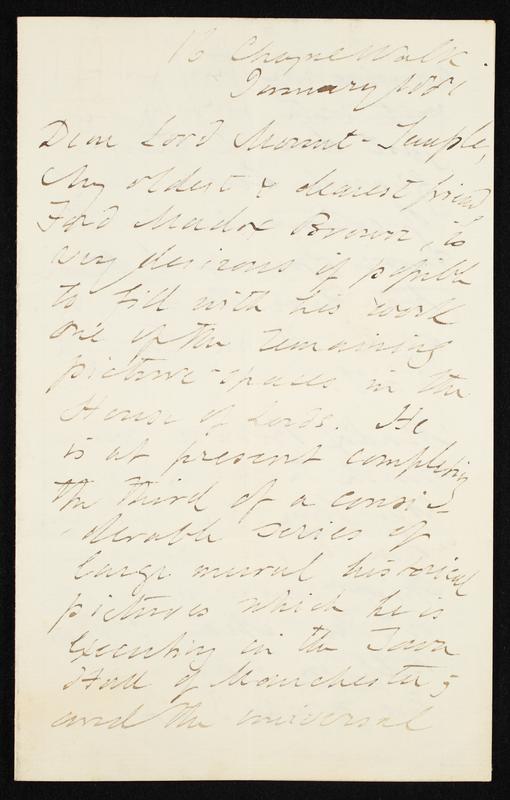 16 Cheyne Walk.
January 1881
Dear Lord Mount-Temple,
My oldest & dearest friend
Ford Madox Brown, is
very desirous if possible
to fill with his work
one of the remaining
picture-spaces in the
House of Lords. He
is at present completing
the third of a consi-
derable series of
large mural historical
pictures which he is
executing in the Town
Hall of Manchester;
and the universal